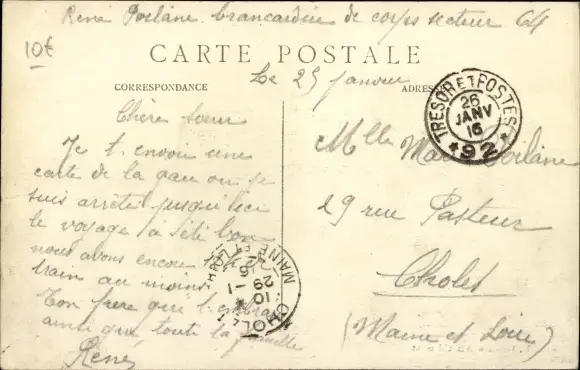 René Poilane brancardier de corps secteur 64
10€
CARTE POSTALE
Le 25 janvier
CORRESPONDANCE
ADRES
Chère Sœur
Je t. envoie une
carte de la gare ou je
suis arrêté jusqu'ici
le voyage a été bon
nous avons encore
train au moins
Ton frere qui t. embrasse
ainsi que toute la famille
René
TRESOR ET POSTES
26
JANV
16
* 92 *
Mlle Poilane
29 rue Pasteur
Cholet
(Maine et Loire)
CHOLET
MAINE ET LOIRE
10
29 - 1